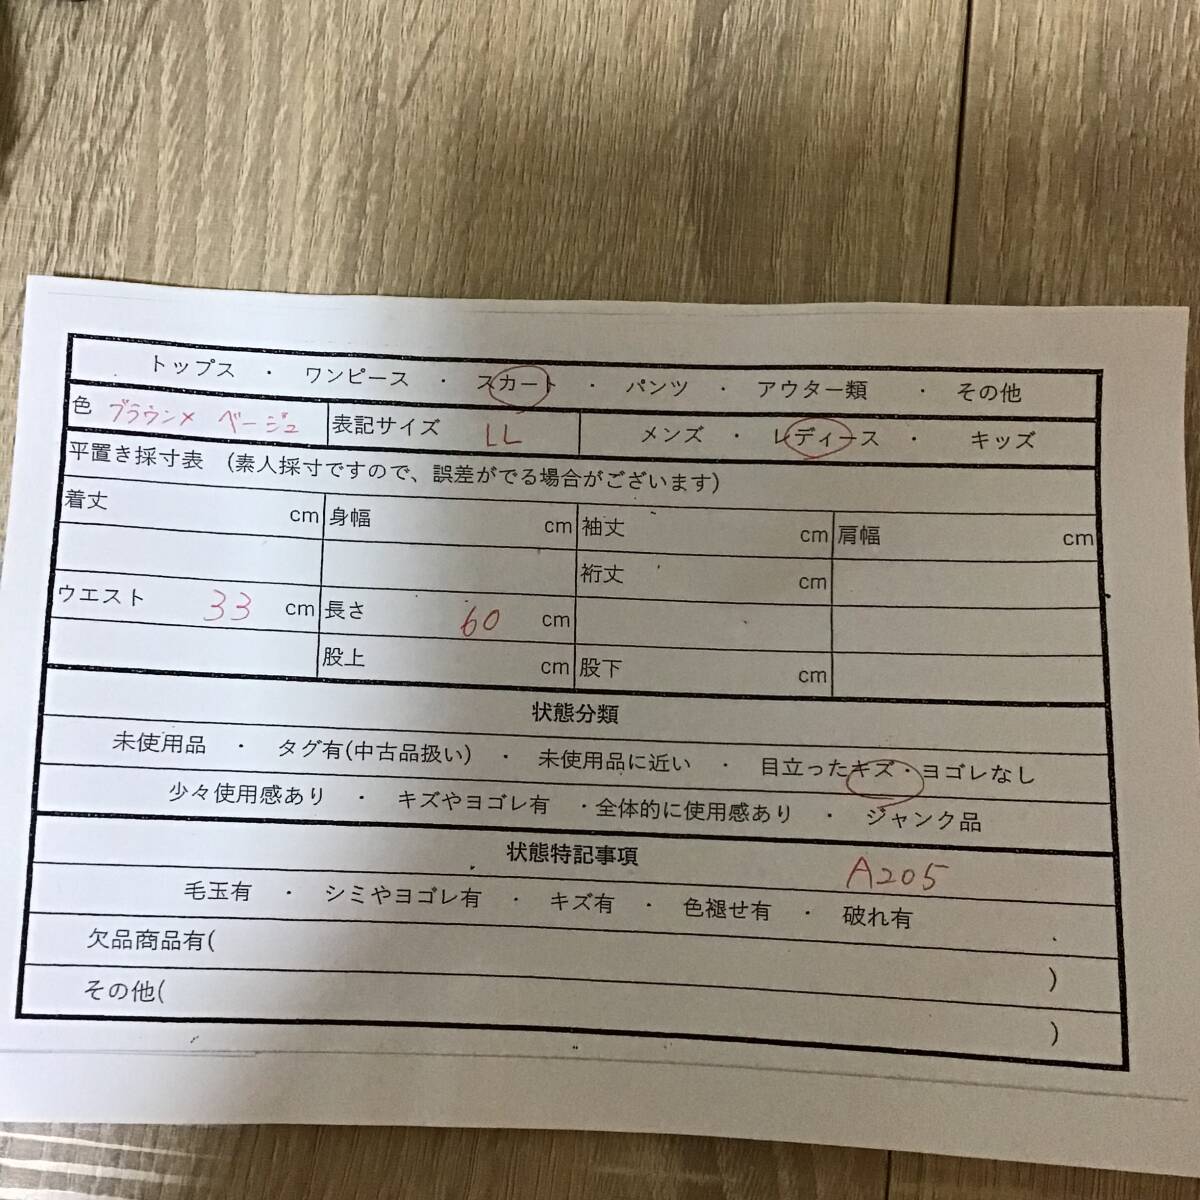 トップス ・ ワンピース ・ スカート ・ パンツ ・ アウター類 ・ その他
色 ブラウン× ベージュ 表記サイズ LL メンズ ・ レディース ・ キッズ
平置き採寸表 (素人採寸ですので、誤差がでる場合がございます)
着丈 cm 身幅 cm 袖丈 cm 肩幅 cm
裄丈 cm
ウエスト 33 cm 長さ 60 cm
股上 cm 股下 cm
状態分類
未使用品 ・ タグ有(中古品扱い) ・ 未使用品に近い ・ 目立ったキズ・ヨゴレなし
少々使用感あり ・ キズやヨゴレ有 ・全体的に使用感あり ・ ジャンク品
状態特記事項 A205
毛玉有 ・ シミやヨゴレ有 ・ キズ有 ・ 色褪せ有 ・ 破れ有
欠品商品有( )
その他( )